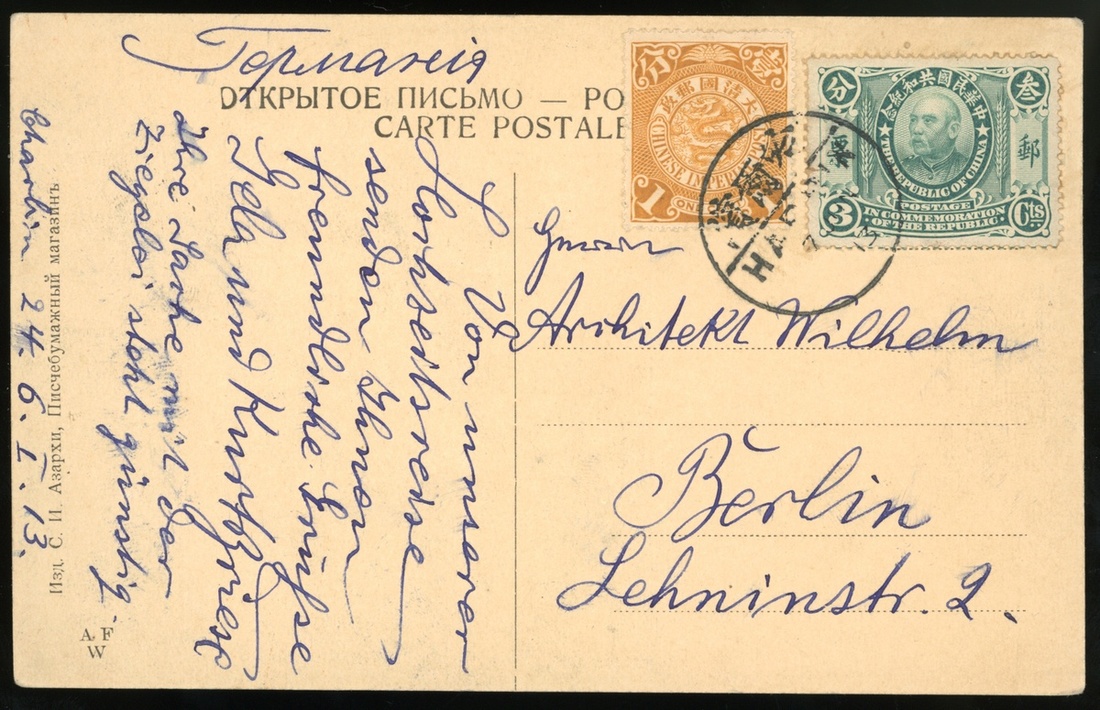 Германія
ОТКРЫТОЕ ПИСЬМО — PO
CARTE POSTALE
分 壹
大清國郵政
CHINESE IMPERIAL
1 ONE
中華民國共和紀
分 叁
票 郵
THE REPUBLIC OF CHINA
POSTAGE
3 Cts
IN COMMEMORATION
OF THE REPUBLIC
HARBIN
13
Herrn
Architekt Wilhelm
Berlin
Lehninstr. 2.
Von unserer
Hochzeitsreise
senden Ihnen
freundliche Grüsse
und Kurt
Ihre Sache mit der
Ziegelei steht günstig.
Charbin 24. 6. I. 13.
Изд. С. И. Азархи, Писчебумажный магазинъ
A. F
W